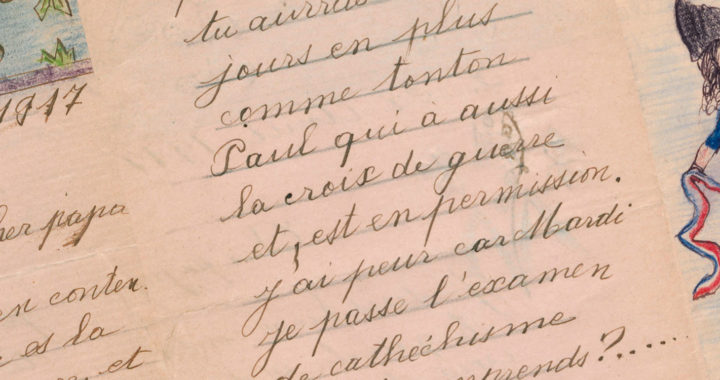 1917
her papa
en conten
es la
et
tu aurras
jours en plus
comme tonton
Paul qui à aussi
la croix de guerre
et, est en permission.
j'ai peur car Mardi
je passe l'examen
de cathéchisme
prends?......